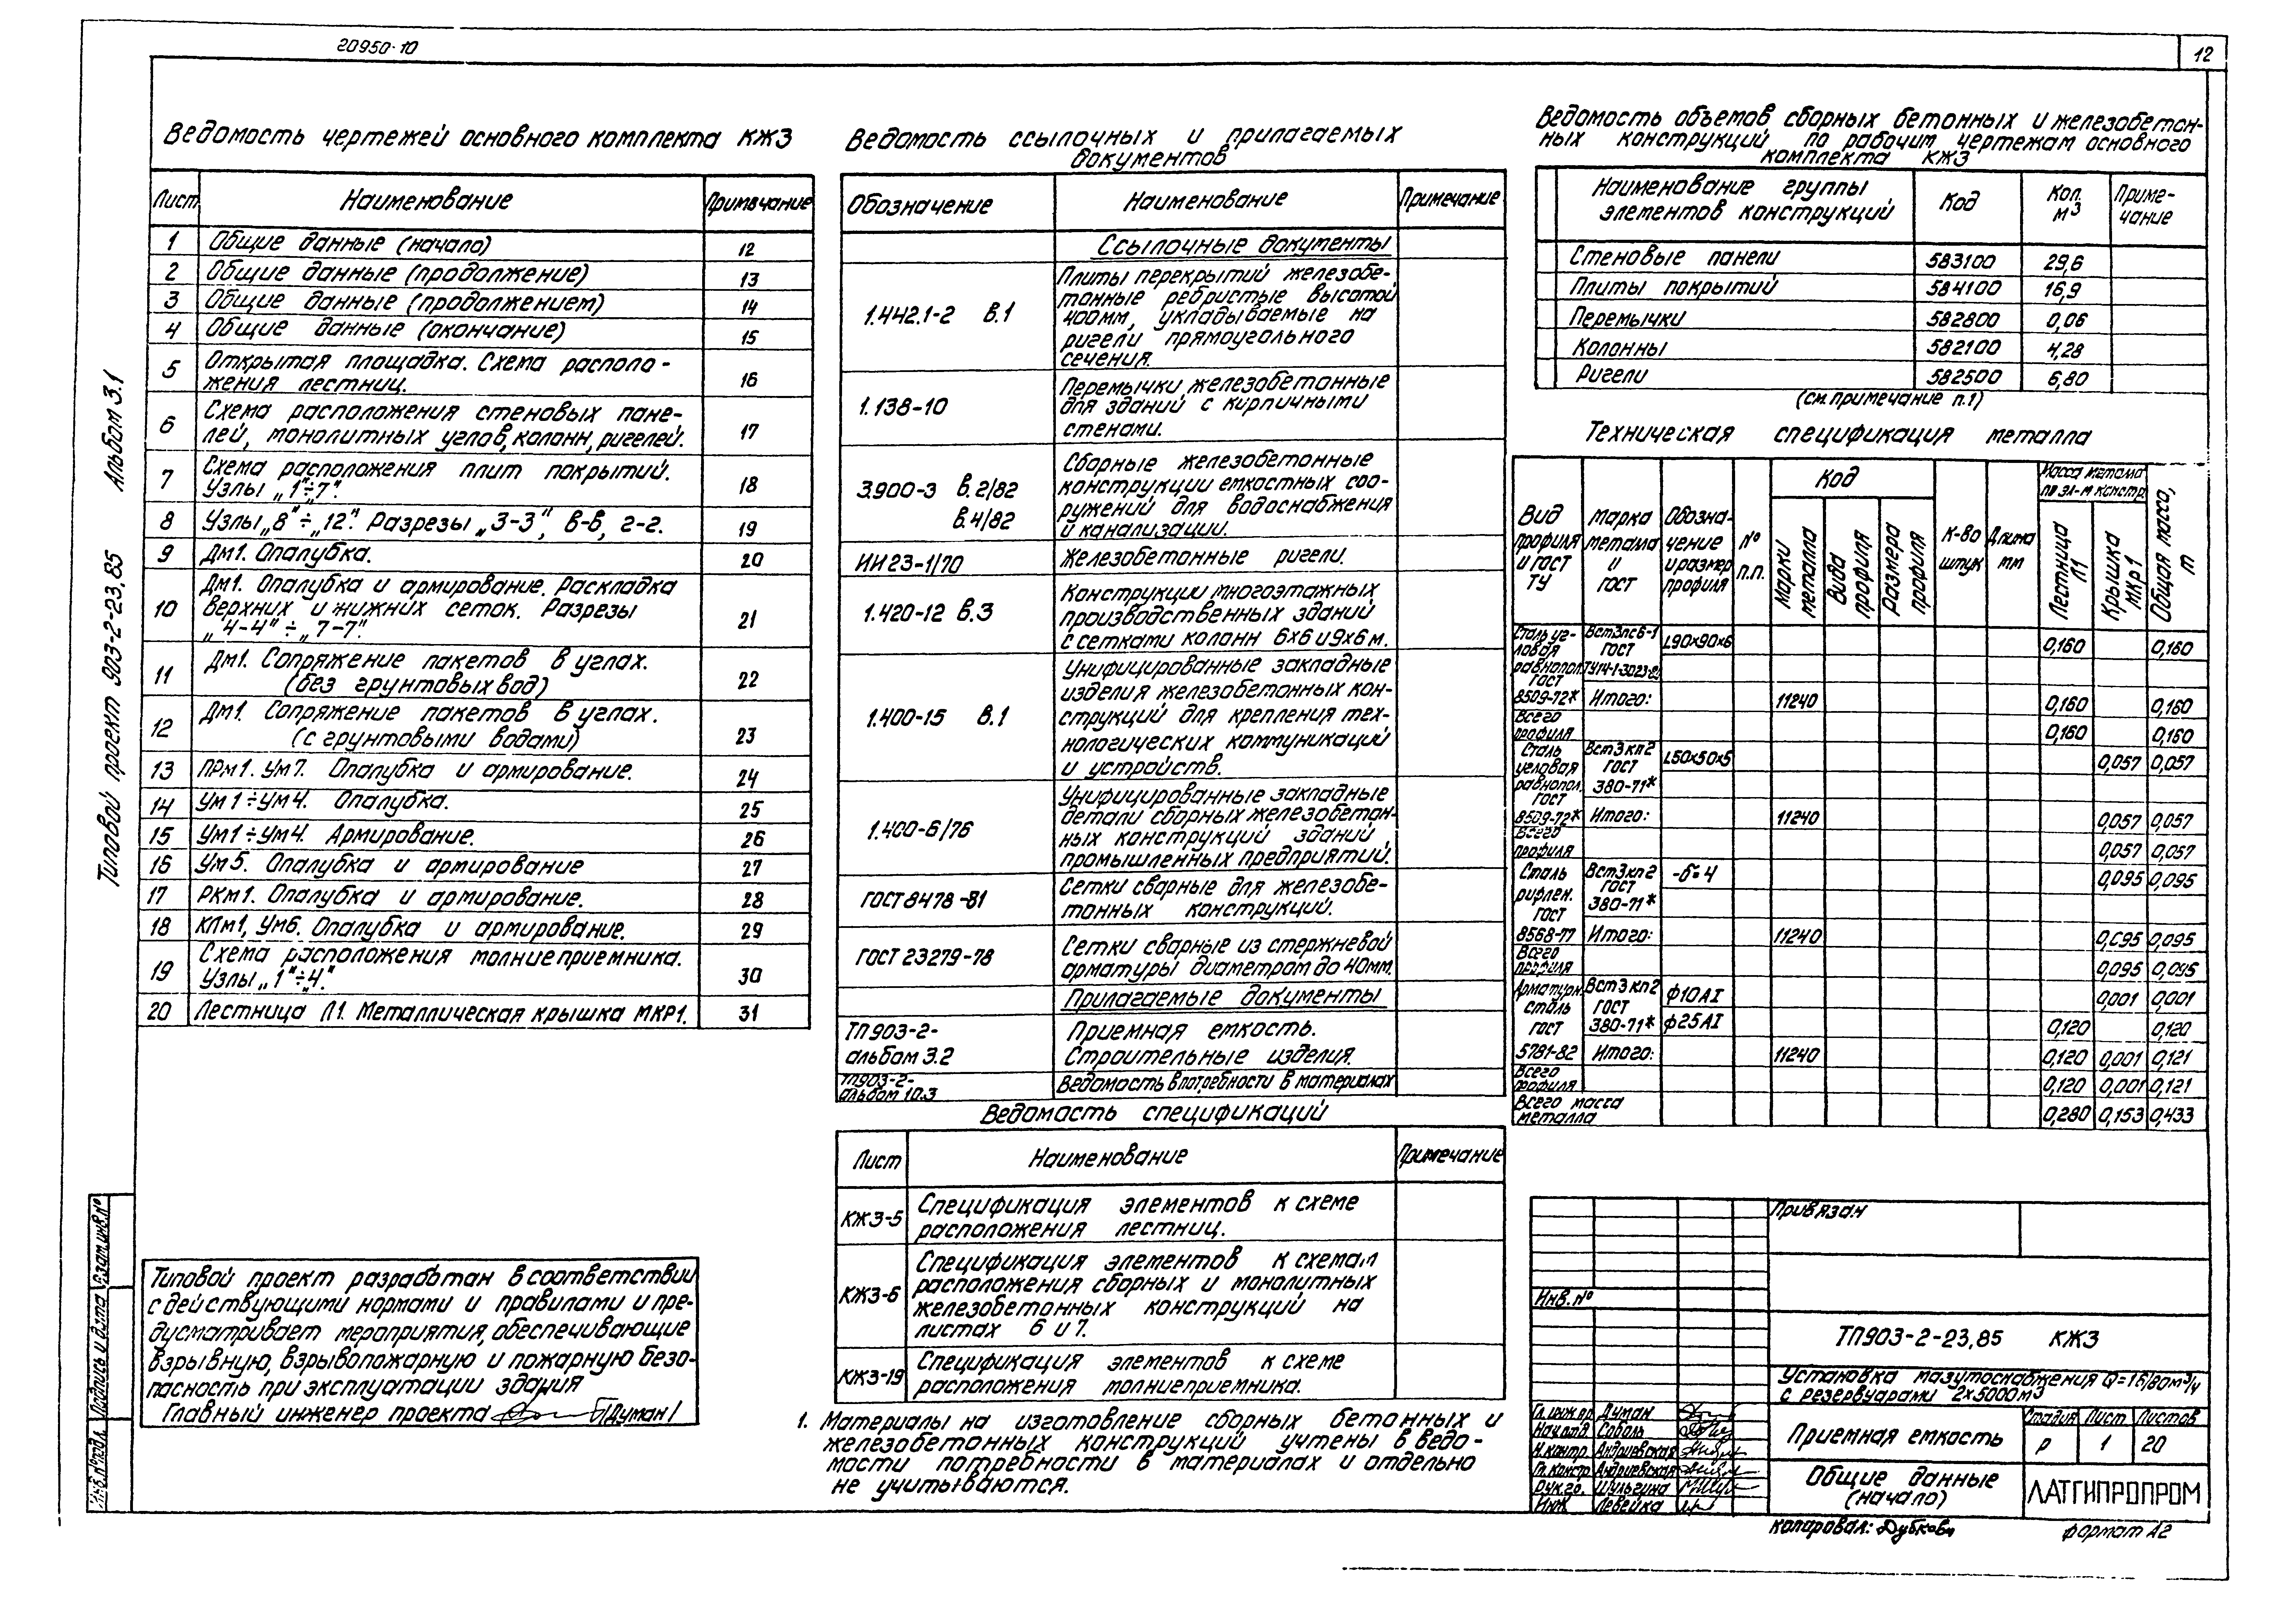 20950-10
12
Типовой проект 903-2-23,85 Альбом 3.1
Ведомость чертежей основного комплекта КЖ3
Лист Наименование Примечание
1 Общие данные (начало) 12
2 Общие данные (продолжение) 13
3 Общие данные (продолжением) 14
4 Общие данные (окончание) 15
5 Открытая площадка. Схема располо-
жения лестниц. 16
6 Схема расположения стеновых пане-
лей, монолитных углов, колонн, ригелей. 17
7 Схема расположения плит покрытий.
Узлы „1"÷„7". 18
8 Узлы „8"÷„12". Разрезы „3-3", в-в, г-г. 19
9 Дм1. Опалубка. 20
10 Дм1. Опалубка и армирование. Раскладка
верхних и нижних сеток. Разрезы
„4-4"÷„7-7". 21
11 Дм1. Сопряжение пакетов в углах.
(без грунтовых вод) 22
12 Дм1. Сопряжение пакетов в углах.
(с грунтовыми водами) 23
13 ПРм1. Ум7. Опалубка и армирование. 24
14 Ум1÷Ум4. Опалубка. 25
15 Ум1÷Ум4. Армирование. 26
16 Ум5. Опалубка и армирование 27
17 РКм1. Опалубка и армирование. 28
18 КЛм1, Ум6. Опалубка и армирование. 29
19 Схема расположения молниеприемника.
Узлы „1"÷„4". 30
20 Лестница Л1. Металлическая крышка МКР1. 31
Типовой проект разработан в соответствии
с действующими нормами и правилами и пре-
дусматривает мероприятия, обеспечивающие
взрывную, взрывопожарную и пожарную безо-
пасность при эксплуатации здания
Главный инженер проекта /Думан/
Взам.инв.№
Подпись и дата
Инв.№подл.
Ведомость ссылочных и прилагаемых
документов
Обозначение Наименование Примечание
Ссылочные документы
1.442.1-2 в.1 Плиты перекрытий железобе-
тонные ребристые высотой
400мм, укладываемые на
ригели прямоугольного
сечения.
1.138-10 Перемычки железобетонные
для зданий с кирпичными
стенами.
3.900-3 в.2/82
в.4/82 Сборные железобетонные
конструкции емкостных соо-
ружений для водоснабжения
и канализации.
ИИ23-1/70 Железобетонные ригели.
1.420-12 в.3 Конструкции многоэтажных
производственных зданий
с сетками колонн 6х6 и 9х6 м.
1.400-15 в.1 Унифицированные закладные
изделия железобетонных кон-
струкций для крепления тех-
нологических коммуникаций
и устройств.
1.400-6/76 Унифицированные закладные
детали сборных железобетон-
ных конструкций зданий
промышленных предприятий.
ГОСТ 8478-81 Сетки сварные для железобе-
тонных конструкций.
ГОСТ 23279-78 Сетки сварные из стержневой
арматуры диаметром до 40мм.
Прилагаемые документы
ТП903-2-
альбом 3.2 Приемная емкость.
Строительные изделия.
ТП903-2-
альбом 10.3 Ведомость в потребности в материалах
Ведомость спецификаций
Лист Наименование Примечание
КЖ3-5 Спецификация элементов к схеме
расположения лестниц.
КЖ3-6 Спецификация элементов к схемам
расположения сборных и монолитных
железобетонных конструкций на
листах 6 и 7.
КЖ3-19 Спецификация элементов к схеме
расположения молниеприемника.
1. Материалы на изготовление сборных бетонных и
железобетонных конструкций учтены в ведо-
мости потребности в материалах и отдельно
не учитываются.
Ведомость объемов сборных бетонных и железобетон-
ных конструкций по рабочим чертежам основного
комплекта КЖ3
Наименование группы
элементов конструкций Код Кол. м3 Приме-
чание
Стеновые панели 583100 29,6
Плиты покрытий 584100 16,9
Перемычки 582800 0,06
Колонны 582100 4,28
Ригели 582500 6,80
(см. примечание п.1)
Техническая спецификация металла
Вид профиля и ГОСТ ТУ
Марка металла и ГОСТ
Обозна-
чение и размер профиля
№ п.п.
Код
Марки металла
Вида профиля
Размера профиля
К-во штук
Длина мм
Масса металла
по эл-м констр.
Лестница Л1
Крышка МКР1
Общая масса, т
Сталь уг-
ловая равнопол. ГОСТ 8509-72*
Вст3пс6-1 ГОСТ ТУ14-1-3023-80 L90х90х6 0,160 0,160
Итого: 11240 0,160 0,160
Всего профиля 0,160 0,160
Сталь угловая равнопол. ГОСТ 8509-72*
Вст3кп2 ГОСТ 380-71* L50х50х5 0,057 0,057
Итого: 11240 0,057 0,057
Всего профиля 0,057 0,057
Сталь рифлен. ГОСТ 8568-77
Вст3кп2 ГОСТ 380-71* -б=4 0,095 0,095
Итого: 11240 0,095 0,095
Всего профиля 0,095 0,095
Арматурн. сталь ГОСТ 5781-82
Вст3кп2 ГОСТ 380-71* ф10АI 0,001 0,001
ф25АI 0,120 0,120
Итого: 11240 0,120 0,001 0,121
Всего профиля 0,120 0,001 0,121
Всего масса
металла 0,280 0,153 0,433
Привязан
Инв.№
ТП903-2-23,85 КЖ3
Установка мазутоснабжения Q=16/80м³/ч
с резервуарами 2х5000м³
Гл.инж.пр Думан
Нач.отд. Соболь
Н.контр. Андриевская
Гл.констр Андриевская
Рук.гр. Шульгина
Инж. Левейка
Приемная емкость
Стадия Лист Листов
Р 1 20
Общие данные
(начало)
ЛАТГИПРОПРОМ
копировал:
формат А2